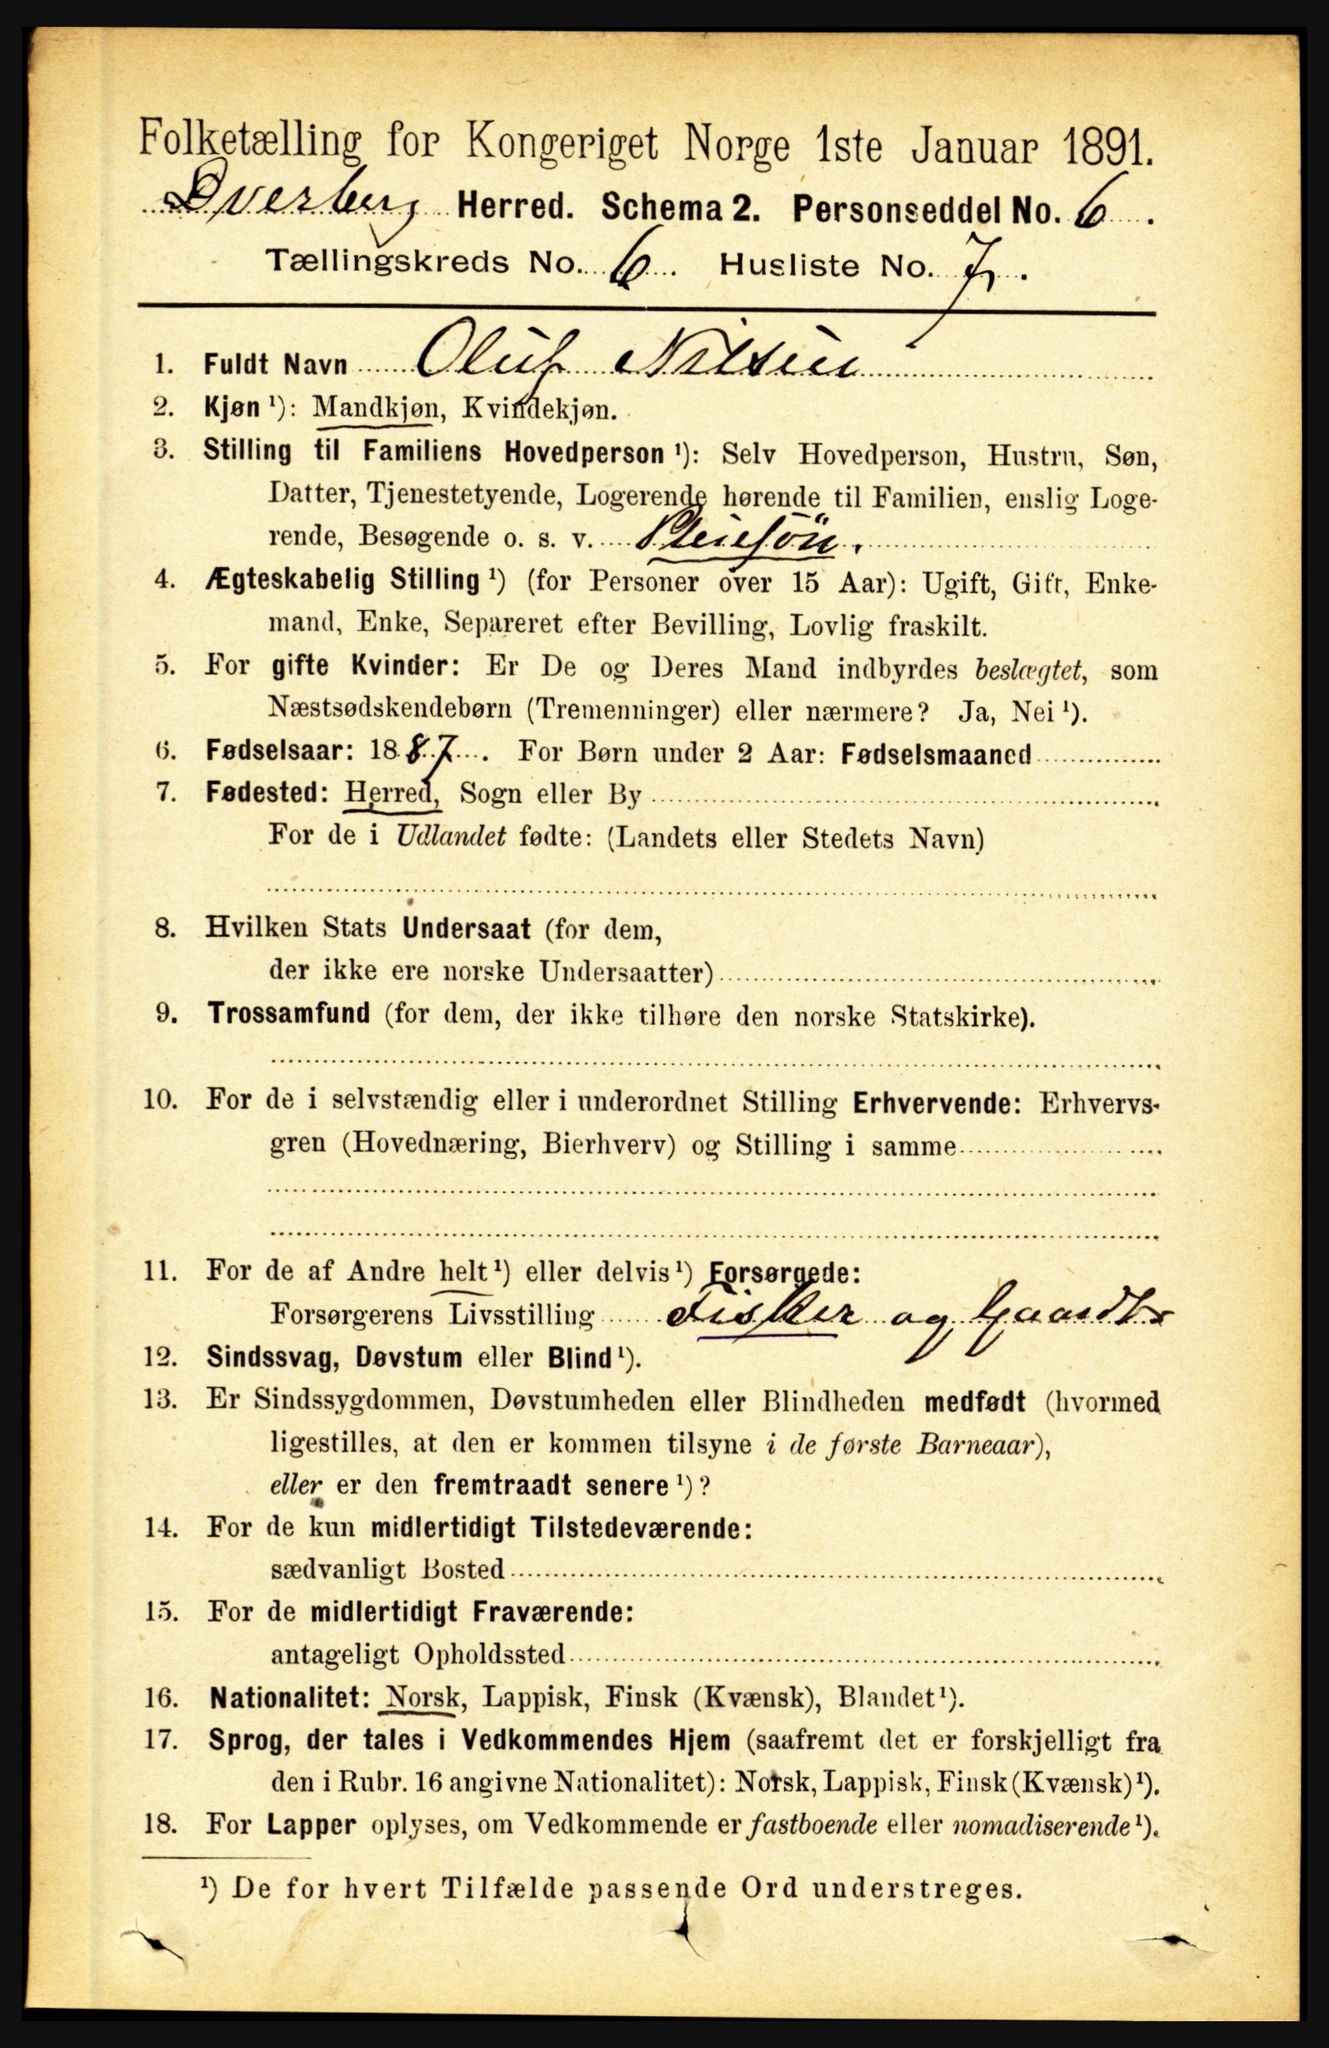 Folketælling for Kongeriget Norge 1ste Januar 1891.
Dverberg Herred. Schema 2. Personseddel No. 6.
Tællingskreds No. 6. Husliste No. 7.
1. Fuldt Navn Oluf Nilsen
2. Kjøn ¹): Mandkjøn, Kvindekjøn.
3. Stilling til Familiens Hovedperson ¹): Selv Hovedperson, Hustru, Søn,
Datter, Tjenestetyende, Logerende hørende til Familien, enslig Loge-
rende, Besøgende o. s. v. Pleiesön.
4. Ægteskabelig Stilling ¹) (for Personer over 15 Aar): Ugift, Gift, Enke-
mand, Enke, Separeret efter Bevilling, Lovlig fraskilt.
5. For gifte Kvinder: Er De og Deres Mand indbyrdes beslægtet, som
Næstsødskendebørn (Tremenninger) eller nærmere? Ja, Nei ¹).
6. Fødselsaar: 1887. For Børn under 2 Aar: Fødselsmaaned
7. Fødested: Herred, Sogn eller By
For de i Udlandet fødte: (Landets eller Stedets Navn)
8. Hvilken Stats Undersaat (for dem,
der ikke ere norske Undersaatter)
9. Trossamfund (for dem, der ikke tilhøre den norske Statskirke).
10. For de i selvstændig eller i underordnet Stilling Erhvervende: Erhvervs-
gren (Hovednæring, Bierhverv) og Stilling i samme
11. For de af Andre helt ¹) eller delvis ¹) Forsørgede:
Forsørgerens Livsstilling Fisker og Gaardbr
12. Sindssvag, Døvstum eller Blind ¹).
13. Er Sindssygdommen, Døvstumheden eller Blindheden medfødt (hvormed
ligestilles, at den er kommen tilsyne i de første Barneaar),
eller er den fremtraadt senere ¹)?
14. For de kun midlertidigt Tilstedeværende:
sædvanligt Bosted
15. For de midlertidigt Fraværende:
antageligt Opholdssted
16. Nationalitet: Norsk, Lappisk, Finsk (Kvænsk), Blandet ¹).
17. Sprog, der tales i Vedkommendes Hjem (saafremt det er forskjelligt fra
den i Rubr. 16 angivne Nationalitet): Norsk, Lappisk, Finsk (Kvænsk) ¹).
18. For Lapper oplyses, om Vedkommende er fastboende eller nomadiserende ¹).
¹) De for hvert Tilfælde passende Ord understreges.